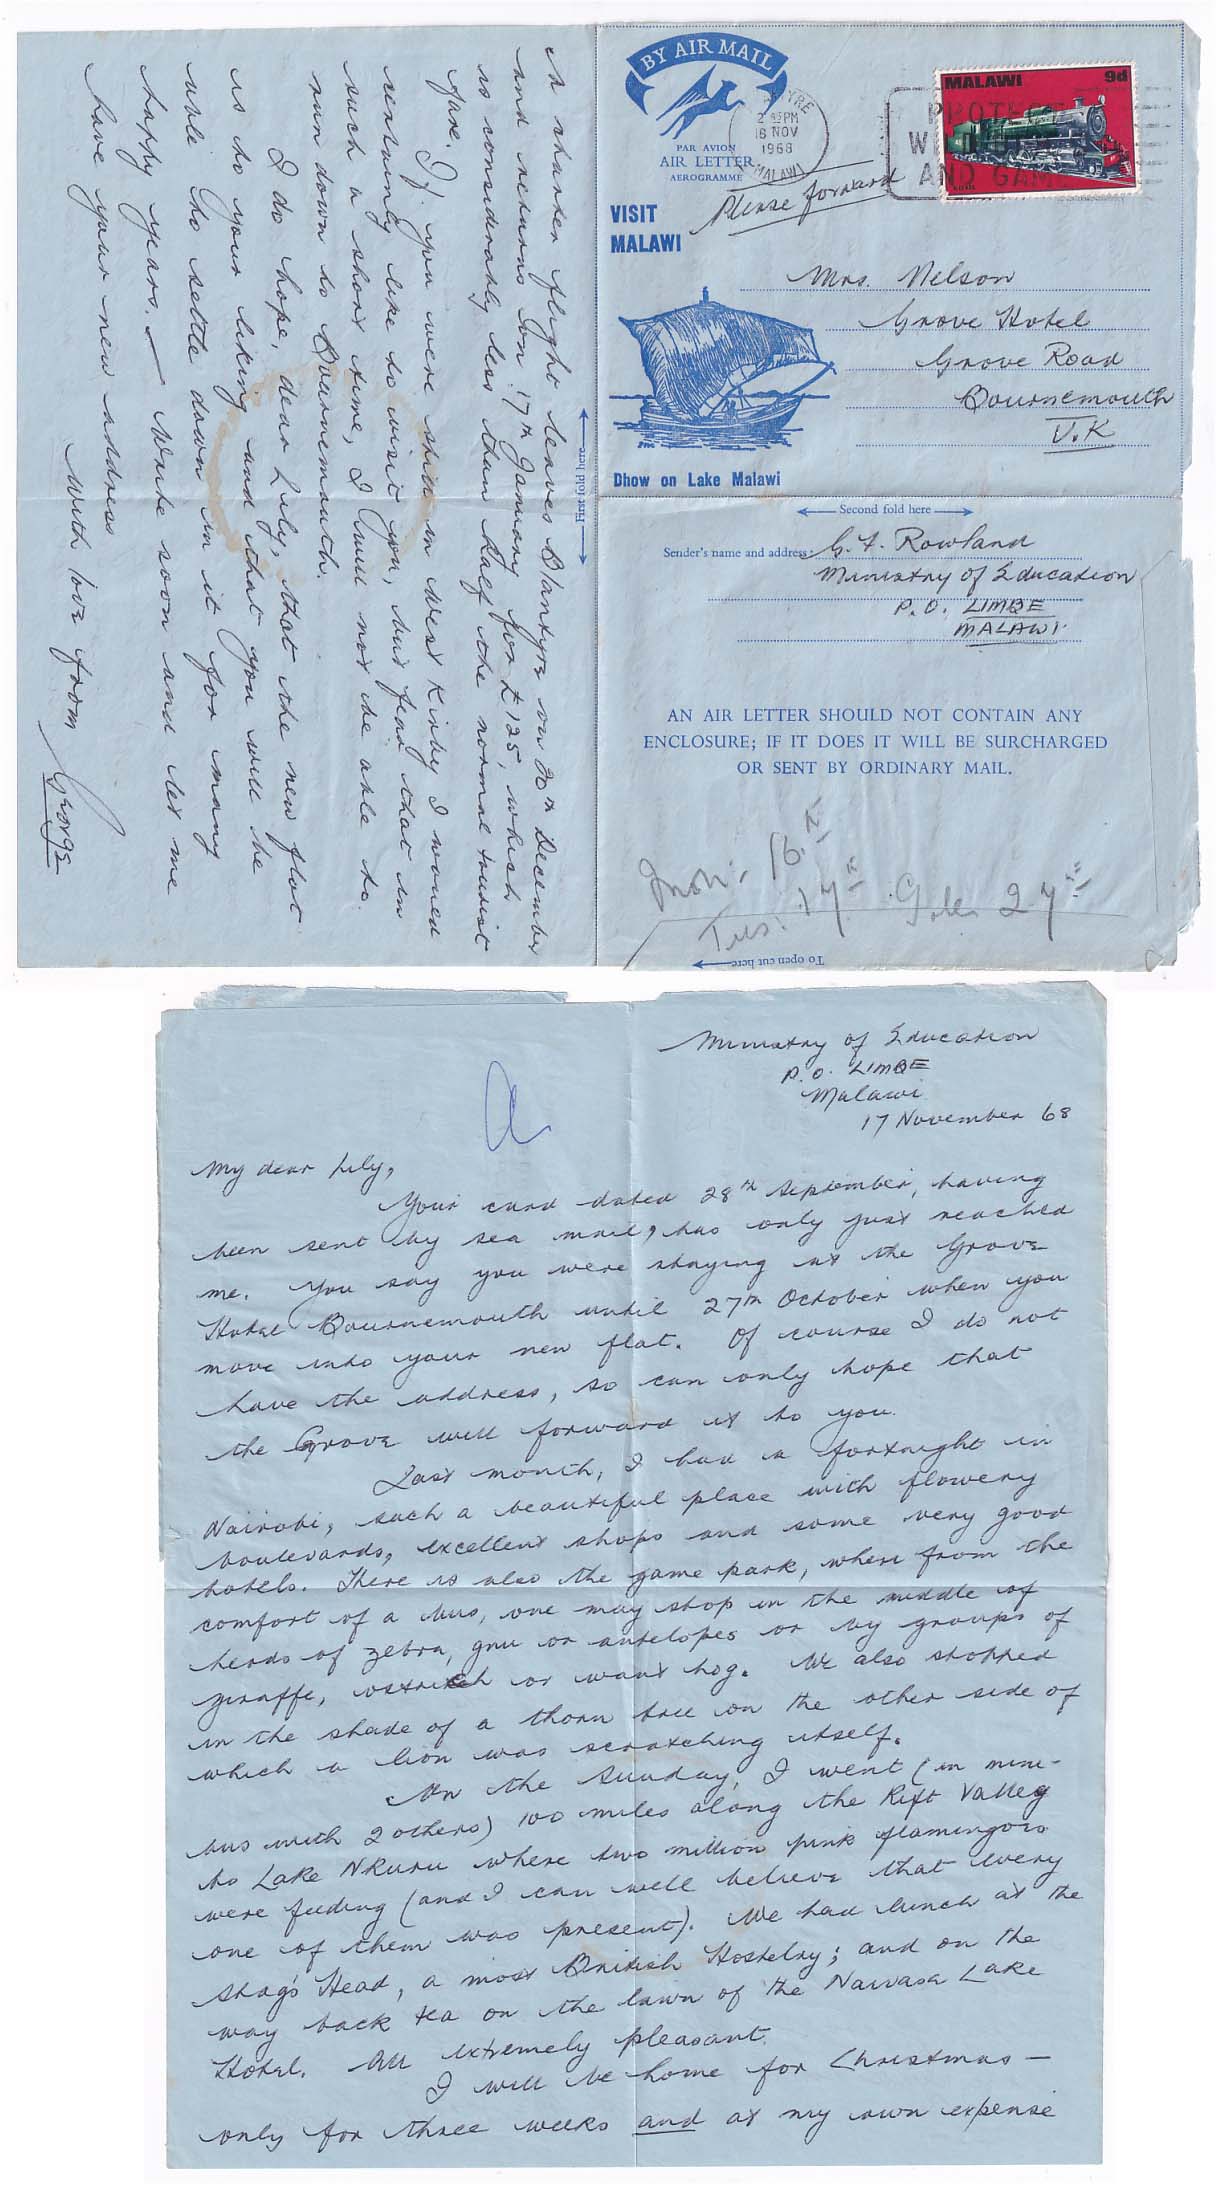 BY AIR MAIL
PAR AVION
AIR LETTER
AEROGRAMME
VISIT
MALAWI
Dhow on Lake Malawi
2 PM
18 NOV
1968
MALAWI
AND GAM
MALAWI 9d
Please forward
Mrs. Nelson
Grove Hotel
Grove Road
Bournemouth
U.K
First fold here
Second fold here
Sender's name and address:
G. F. Rowland
Ministry of Education
P.O. LIMBE
MALAWI
AN AIR LETTER SHOULD NOT CONTAIN ANY
ENCLOSURE; IF IT DOES IT WILL BE SURCHARGED
OR SENT BY ORDINARY MAIL.
Mon: 16
Tues: 17 27
To open cut here
Ministry of Education
P.O. LIMBE
Malawi
17 November 68
My dear Lily,
Your card dated 28th September, having
been sent by sea mail, has only just reached
me. You say you were staying at the Grove
Hotel Bournemouth until 27th October when you
move into your new flat. Of course I do not
have the address, so can only hope that
the Grove will forward it to you.
Last month, I had a fortnight in
Nairobi, such a beautiful place with flowery
boulevards, excellent shops and some very good
hotels. There is also the game park, where from the
comfort of a bus, one may stop in the middle of
herds of zebra, gnu or antelopes or by groups of
giraffe, ostrich or wart hog. We also stopped
in the shade of a thorn tree on the other side of
which a lion was scratching itself.
On the Sunday, I went (in mini-
bus with 2 others) 100 miles along the Rift Valley
to Lake NKuru where two million pink flamingoes
were feeding (and I can well believe that every
one of them was present). We had lunch at the
Stag's Head, a most British Hostelry; and on the
way back tea on the lawn of the Naivasa Lake
Hotel. All extremely pleasant.
I will be home for Christmas —
only for three weeks and at my own expense
A charter flight leaves Blantyre on 20th December
and returns on 17th January for £125, which
is considerably less than half the normal tourist
fare. If you were still in West Kirby I would
certainly like to visit you, but fear that in
such a short time, I will not be able to
run down to Bournemouth.
I do hope, dear Lily, that the new flat
is to your liking and that you will be
able to settle down in it for many
happy years. — Write soon and let me
have your new address
With love from
George